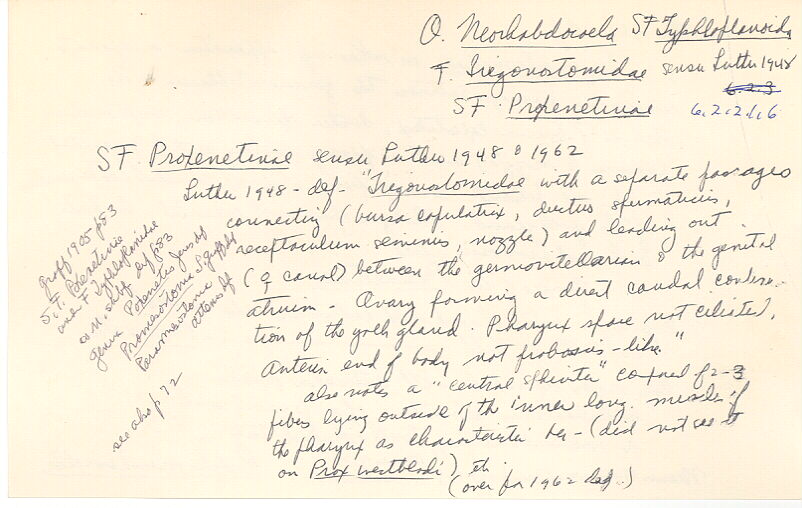 O. Neorhabdocoela SF Typhloplanoida
F. Trigonostomidae sensu Luther 1948
6.2.3
SF Proxenetinae 6.2.2.1.6
SF Proxenetinae sensu Luther 1948 & 1962
Luther 1948 - def - "Trigonostomidae with a separate passages
connecting (bursa copulatrix, ductus spermaticus,
receptaculum seminis, nozzle) and leading out
(♀ canal) between the germovitellarian & the genital
atrium. Ovary forming a direct caudal continua-
tion of the yolk gland. Pharynx space not ciliated,
Anterior end of body not proboscis-like."
also notes a "central sphincter" composed of 2-3
fibers lying outside of the inner long. muscles of
the pharynx as characteristic - (did not see it
on Prox westbladi) etc.
(over for 1962 def.)
Graff 1905 p83
S.F. Proxenetinae
and F Typhloplanidae
genera Proxenetes Jensen
Promesostoma Graff
see also p 72